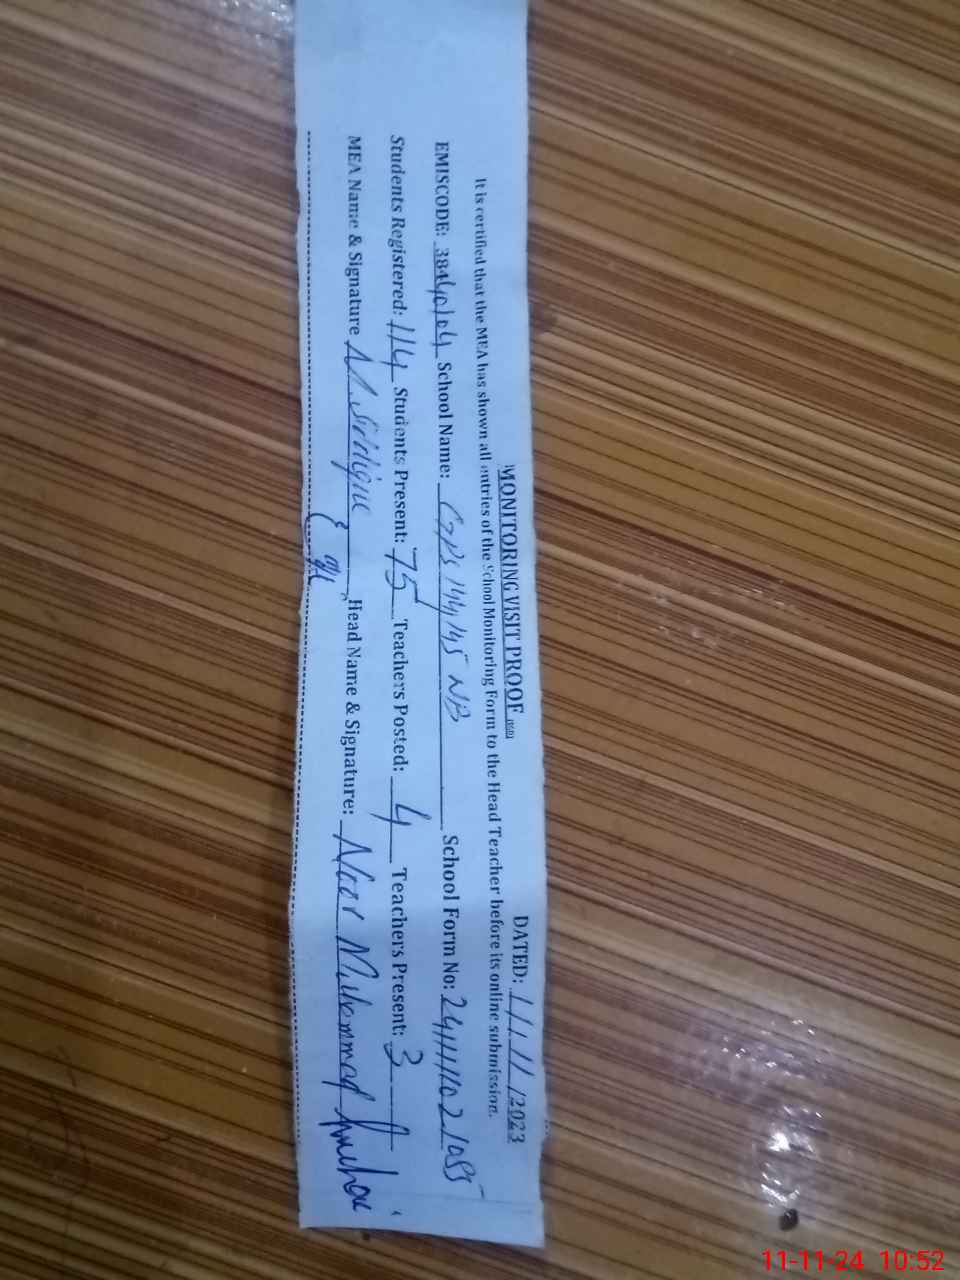 MONITORING VISIT PROOF
DATED: 11/11/2023
It is certified that the MEA has shown all entries of the School Monitoring Form to the Head Teacher before its online submission.
EMISCODE: School Name: GPS 144,145 NB School Form No:
Students Registered: 114 Students Present: 75 Teachers Posted: 4 Teachers Present: 3
MEA Name & Signature Siddique Head Name & Signature: Noor Muhammad
11-11-24 10:52